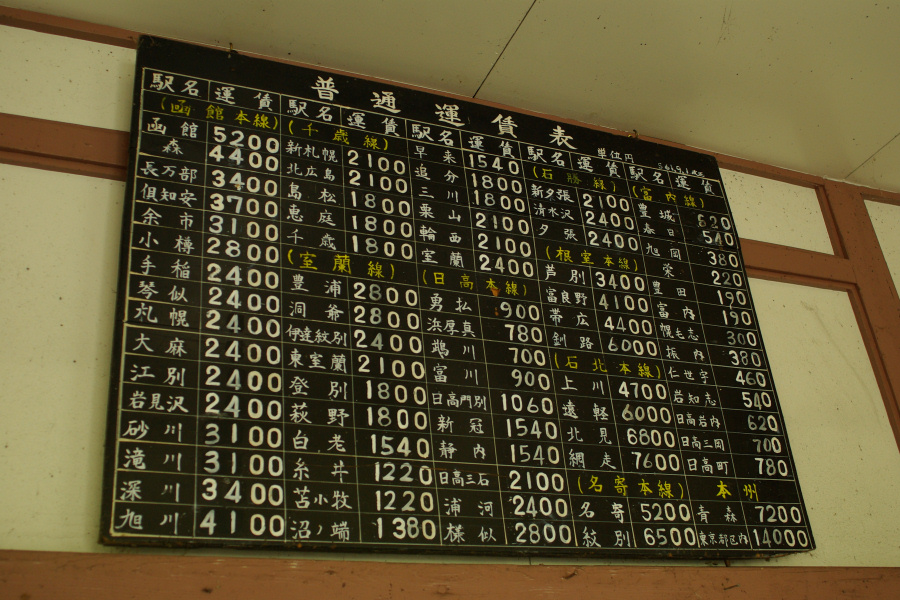 普通運賃表
単位円
駅名 運賃
(函館本線)
函館 5200
森 4400
長万部 3400
倶知安 3700
余市 3100
小樽 2800
手稲 2400
琴似 2400
札幌 2400
大麻 2400
江別 2400
岩見沢 2400
砂川 3100
滝川 3100
深川 3400
旭川 4100
駅名 運賃
(千歳線)
新札幌 2100
北広島 2100
島松 1800
恵庭 1800
千歳 1800
(室蘭線)
豊浦 2800
洞爺 2800
伊達紋別 2400
東室蘭 2100
登別 1800
萩野 1800
白老 1540
糸井 1220
苫小牧 1220
沼ノ端 1380
駅名 運賃
早来 1540
追分 1800
三川 1800
栗山 2100
輪西 2100
室蘭 2400
(日高本線)
勇払 900
浜厚真 780
鵡川 700
富川 900
日高門別 1060
新冠 1540
静内 1540
日高三石 2100
浦河 2400
様似 2800
駅名 運賃
(石勝線)
新夕張 2100
清水沢 2400
夕張 2400
(根室本線)
芦別 3400
富良野 4100
帯広 4400
釧路 6000
(石北本線)
上川 4700
遠軽 6000
北見 6800
網走 7600
(名寄本線)
名寄 5200
紋別 6500
駅名 運賃
(富内線)
豊城 620
春日 540
旭岡 380
栄 220
豊田 190
富内 190
幌毛志 300
振内 380
仁世宇 460
岩知志 540
日高岩内 620
日高三岡 700
日高町 780
本州
青森 7200
東京都区内 14000